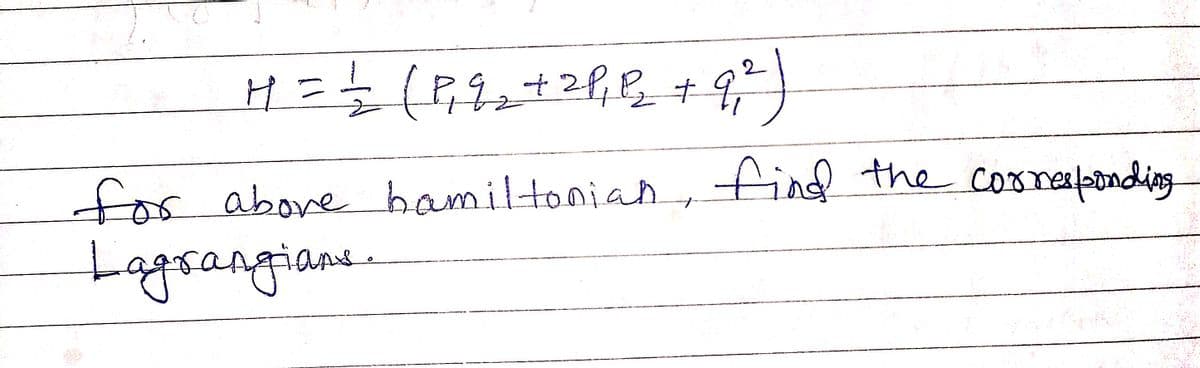 H = 1/2 (P₁q₂ + 2P₁P₂ + q₁²)
for above hamiltonian, find the corresponding
Lagrangians.